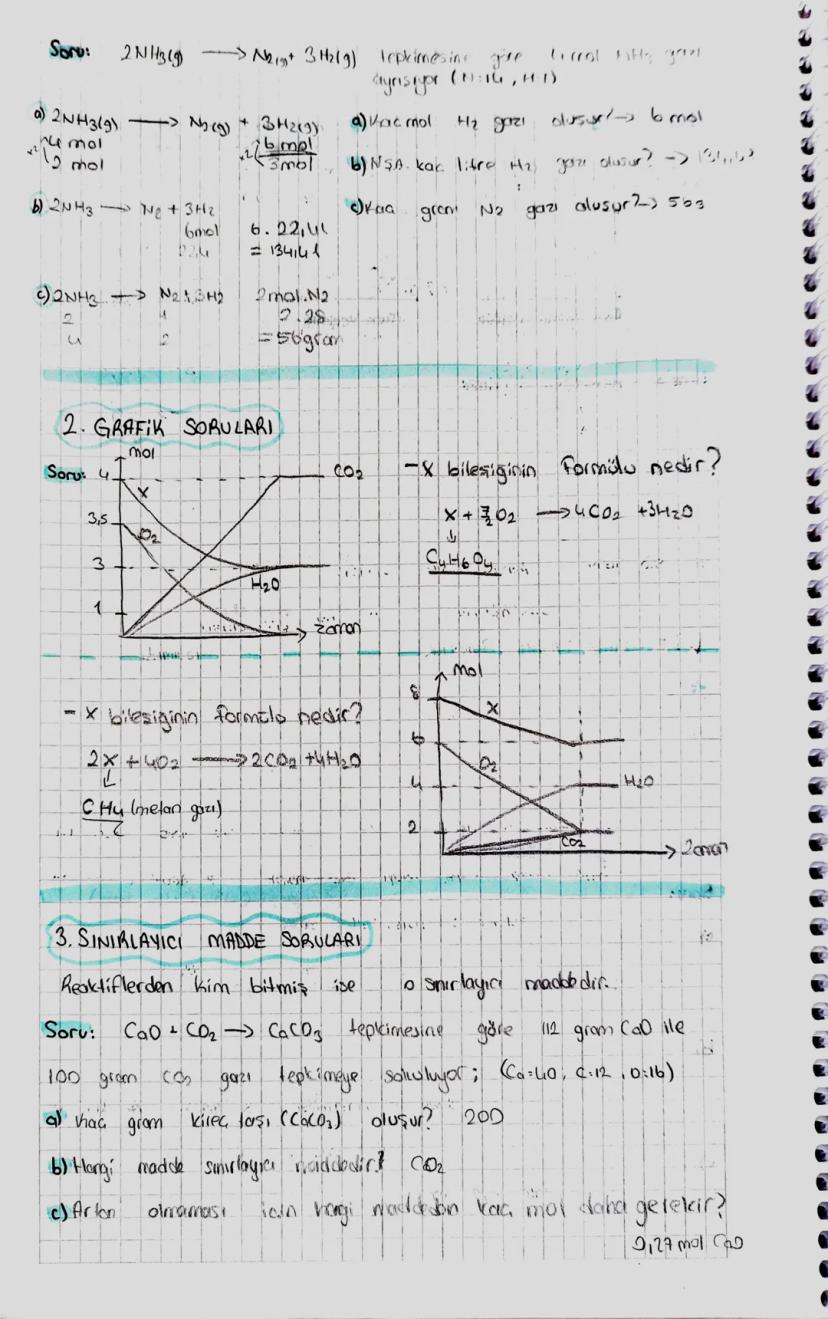 Soru: 2NH3(g) → N2(g) + 3H2(g) tepkimesine göre 4 mol NH3 gazı
ayrışıyor (N:14, H:1)
a) 2NH3(g) → N2(g) + 3H2(g)
4 mol 6 mol
x2 2 mol x2 3mol
a) Kaç mol H2 gazı oluşur? → 6 mol
b) N.Ş.A kaç litre H2 gazı oluşur? →
c) Kaç gram N2 gazı oluşur? → 56g
b) 2NH3 → N2 + 3H2
6mol 6.22,4L
22,4 = 134,4L
c) 2NH3 → N2+3H2 2mol.N2
2 1 2.28
4 2 = 56gram
2. GRAFİK SORULARI
Soru:
mol
4
X
3,5
O2
3
1
CO2
H2O
zaman
- X bileşiğinin formülü nedir?
X + 7/2 O2 → 4CO2 + 3H2O
↓
C4H6O4
- X bileşiğinin formülü nedir?
2X + 4O2 → 2CO2 + 4H2O
CH4 (metan gazı)
mol
8
X
6
O2
4
H2O
2
CO2
zaman
3. SINIRLAYICI MADDE SORULARI
Reaktiflerden kim bitmiş ise o sınırlayıcı maddedir.
Soru: CaO + CO2 → CaCO3 tepkimesine göre 112 gram CaO ile
100 gram CO2 gazı tepkimeye sokuluyor; (Ca=40, C:12, O:16)
a) Kaç gram kireç taşı (CaCO3) oluşur? 200
b) Hangi madde sınırlayıcı maddedir? CO2
c) Artan olmaması için hangi maddeden kaç mol daha gerekir?
0,27 mol CaO